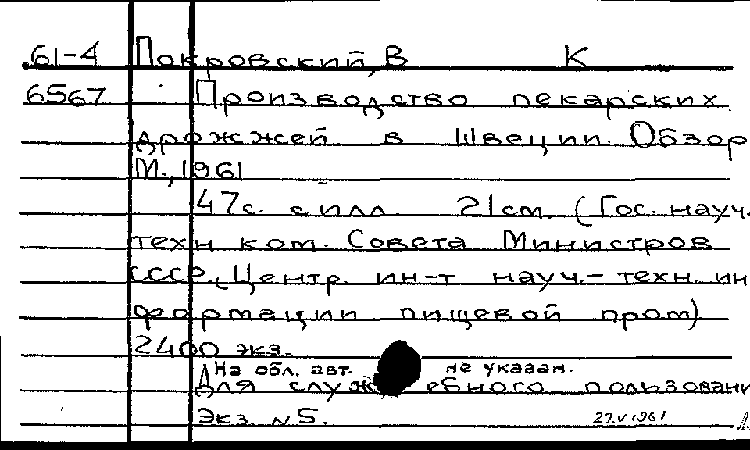 61-4 Покровский, В К
6567 Производство пекарских
дрожжей в Швеции. Обзор
М., 1961
47с. с илл. 21см. (Гос. науч.
техн ком. Совета Министров
СССР. Центр. ин-т науч.-техн. ин
формации пищевой пром)
2400 экз.
На обл. авт. не указан.
Для служебного пользовани
Экз. №5. 27.V 1961